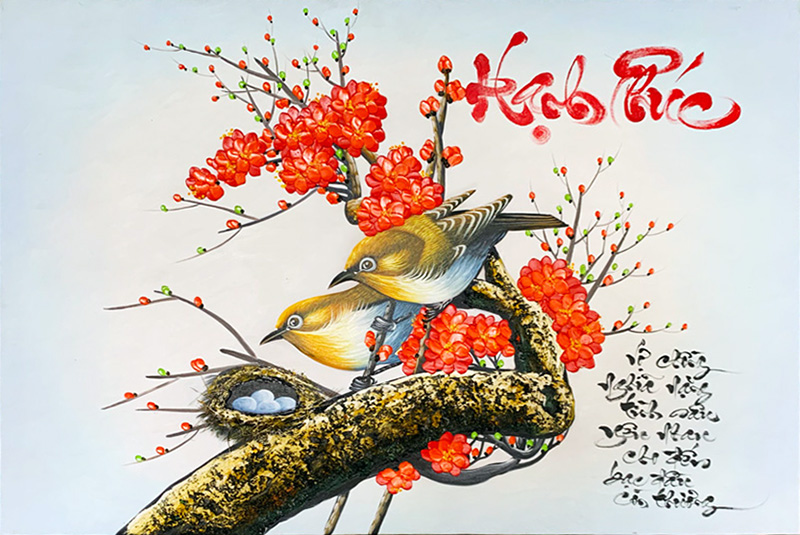 Hạnh Phúc
Vợ chồng
nghĩa nặng
tình sâu
yêu nhau
cho đến
bạc đầu
còn thương